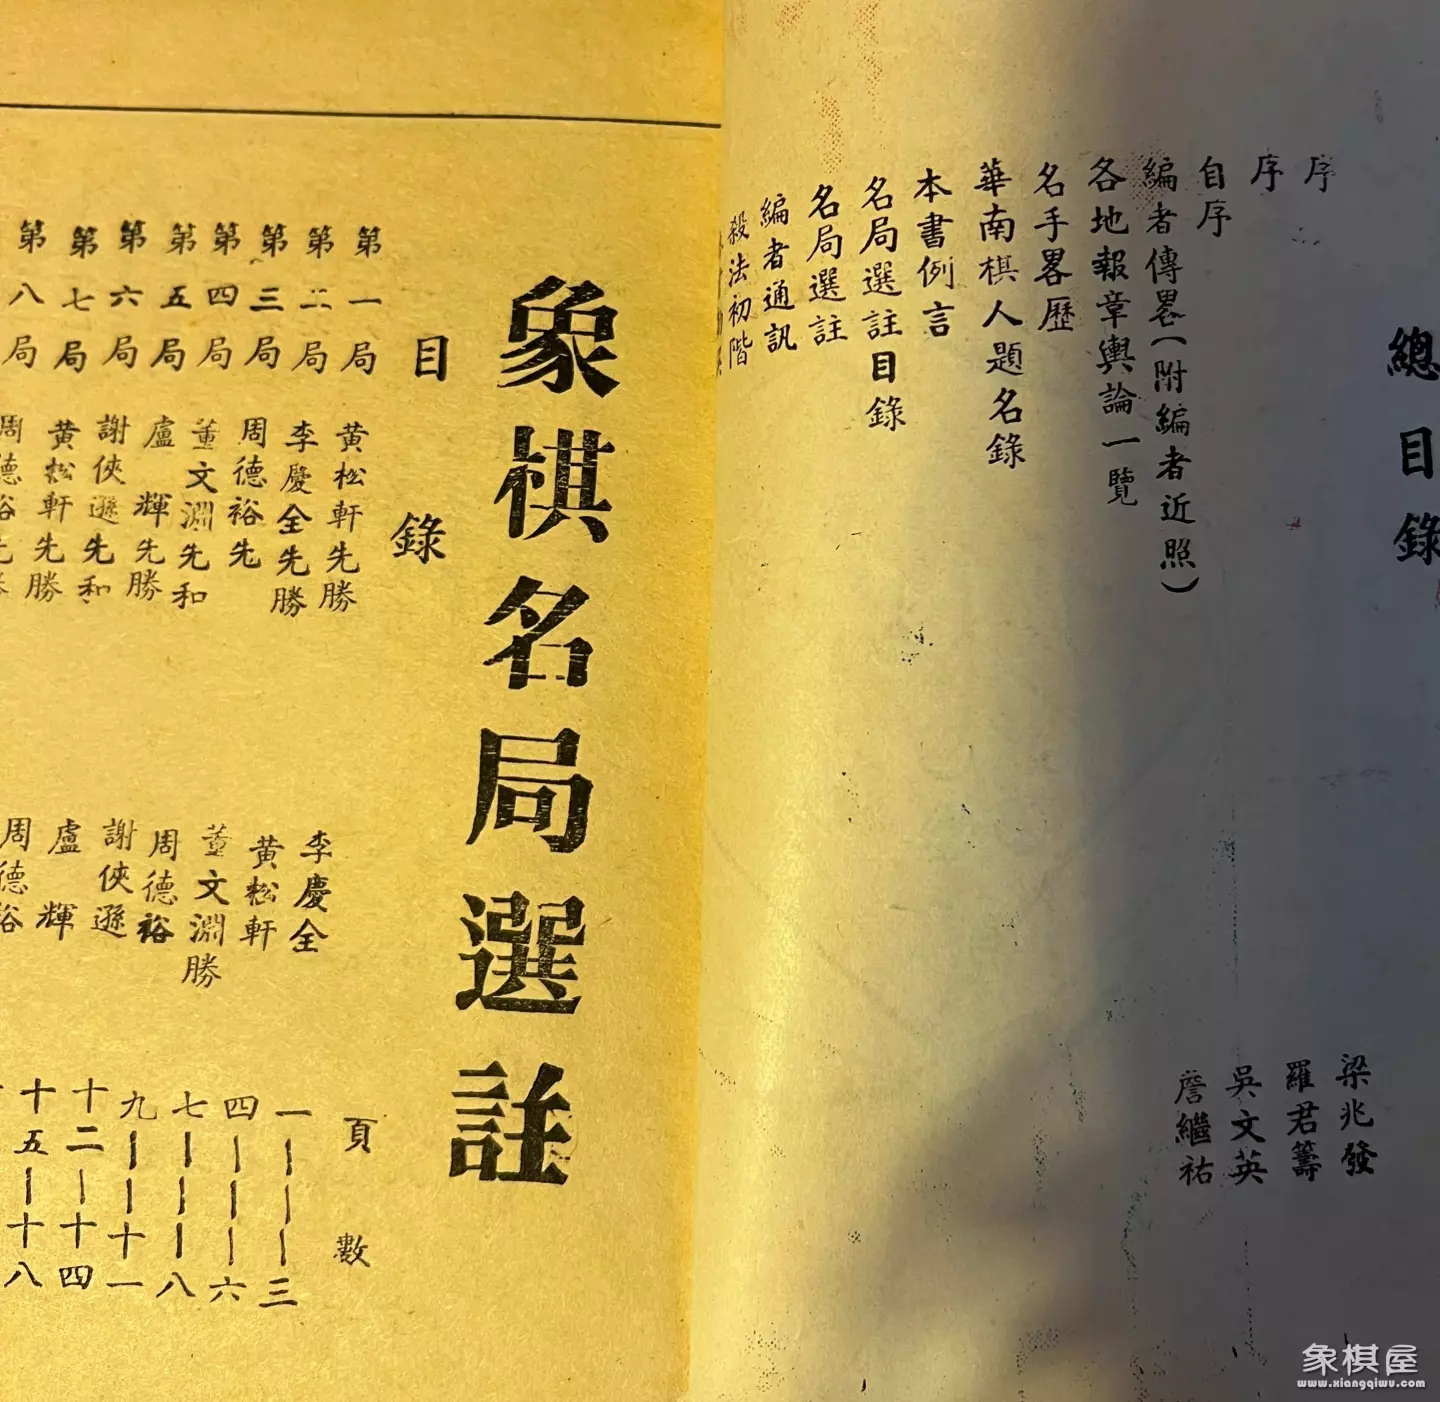 總目錄
序 梁兆發
序 羅君籌
自序 吳文英
編者傳畧(附編者近照) 詹繼祐
各地報章輿論一覽
名手畧歷
華南棋人題名錄
本書例言
名局選註目錄
名局選註
編者通訊
殺法初階
象棋名局選註
目錄 頁數
第一局 黃松軒先勝 李慶全 一———三
第二局 李慶全先勝 黃松軒 四———六
第三局 周德裕先 董文淵勝 七———八
第四局 董文淵先和 周德裕 九——十一
第五局 盧輝先勝 謝俠遜 十二—十四
第六局 謝俠遜先和 盧輝 十五—十八
第七局 黃松軒先勝 周德裕
第八局 周德裕先
象棋屋
www.xiangqiwu.com